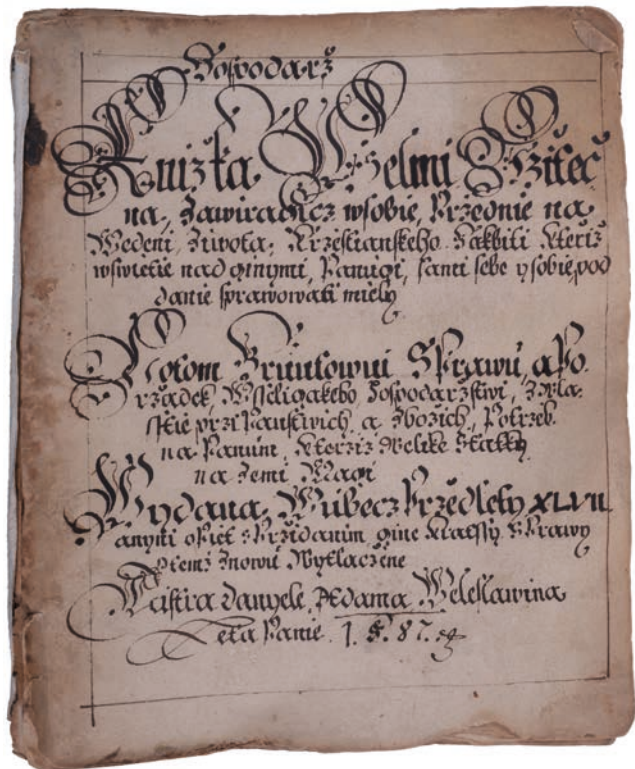 Hospodarž
Knižka Welmi Vžiteč
na, Zawiragicz wsobie, Pržednie na
Wedeni, Ziwota, Krzestianskeho Jakbiti Kteržiž
wswietie nad ginymi, Panugi, sami sebe y sobie pod
danie sprawowati miely
Potom Gruntowni Sprawu, a Po
ržadek, Wsseligakeho Hospodaržstwi, Zwla
sstie przi Panstwich a Zbožich, Potrzeb
na Panum, Kterziz Welike Statky
na Zemi Magi
Wydana, Wubec Pržedlety XLVII
anyni opiet s Pržidanim gine Kratssy Sprawy
otemž Znowu Wytlačene
Mistra Danyele Adama Weleslawina
Leta Panie 1.5.87.